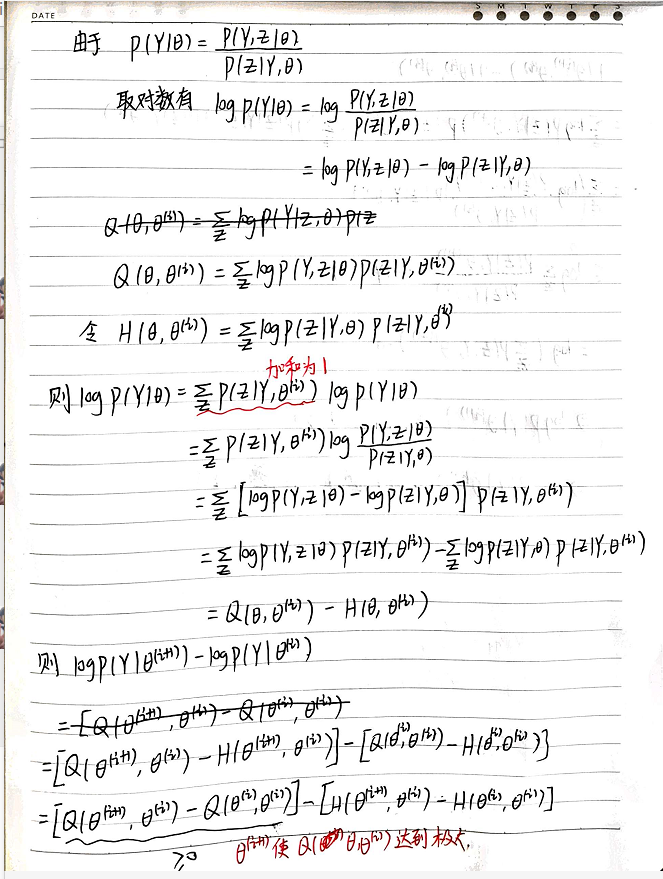 DATE S M T W T F S
由于 P(Y|θ) = P(Y,Z|θ) / P(Z|Y,θ)
取对数有 log P(Y|θ) = log P(Y,Z|θ) / P(Z|Y,θ)
= log P(Y,Z|θ) - log P(Z|Y,θ)
Q(θ,θ^(i)) = Σ_Z log P(Y|Z,θ) P(Z
Q(θ,θ^(i)) = Σ_Z log P(Y,Z|θ) P(Z|Y,θ^(i))
令 H(θ,θ^(i)) = Σ_Z log P(Z|Y,θ) P(Z|Y,θ^(i))
加和为1
则 log P(Y|θ) = Σ_Z P(Z|Y,θ^(i)) log P(Y|θ)
= Σ_Z P(Z|Y,θ^(i)) log P(Y,Z|θ) / P(Z|Y,θ)
= Σ_Z [log P(Y,Z|θ) - log P(Z|Y,θ)] P(Z|Y,θ^(i))
= Σ_Z log P(Y,Z|θ) P(Z|Y,θ^(i)) - Σ_Z log P(Z|Y,θ) P(Z|Y,θ^(i))
= Q(θ,θ^(i)) - H(θ,θ^(i))
则 log P(Y|θ^(i+1)) - log P(Y|θ^(i))
= [Q(θ^(i+1),θ^(i)) - Q(θ^(i),θ^(i))
= [Q(θ^(i+1),θ^(i)) - H(θ^(i+1),θ^(i))] - [Q(θ^(i),θ^(i)) - H(θ^(i),θ^(i))]
= [Q(θ^(i+1),θ^(i)) - Q(θ^(i),θ^(i))] - [H(θ^(i+1),θ^(i)) - H(θ^(i),θ^(i))]
≥0 θ^(i+1) 使 Q(θ,θ^(i)) 达到极大